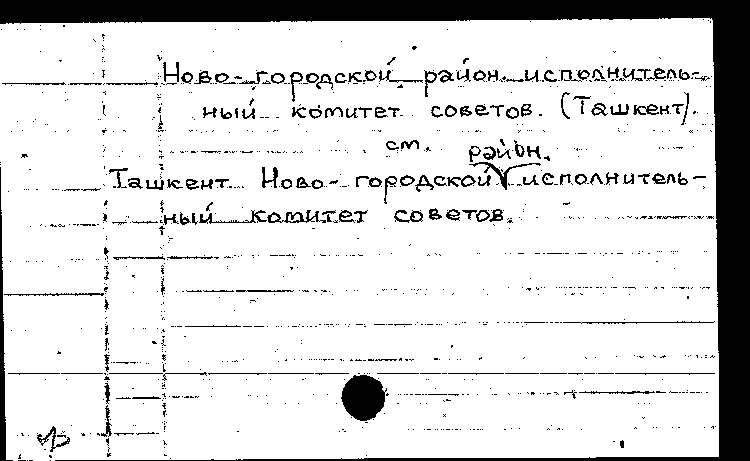 Ново-городской район. исполнитель-
ный комитет советов. (Ташкент).
см.
район.
Ташкент Ново-городской исполнитель-
ный комитет советов.